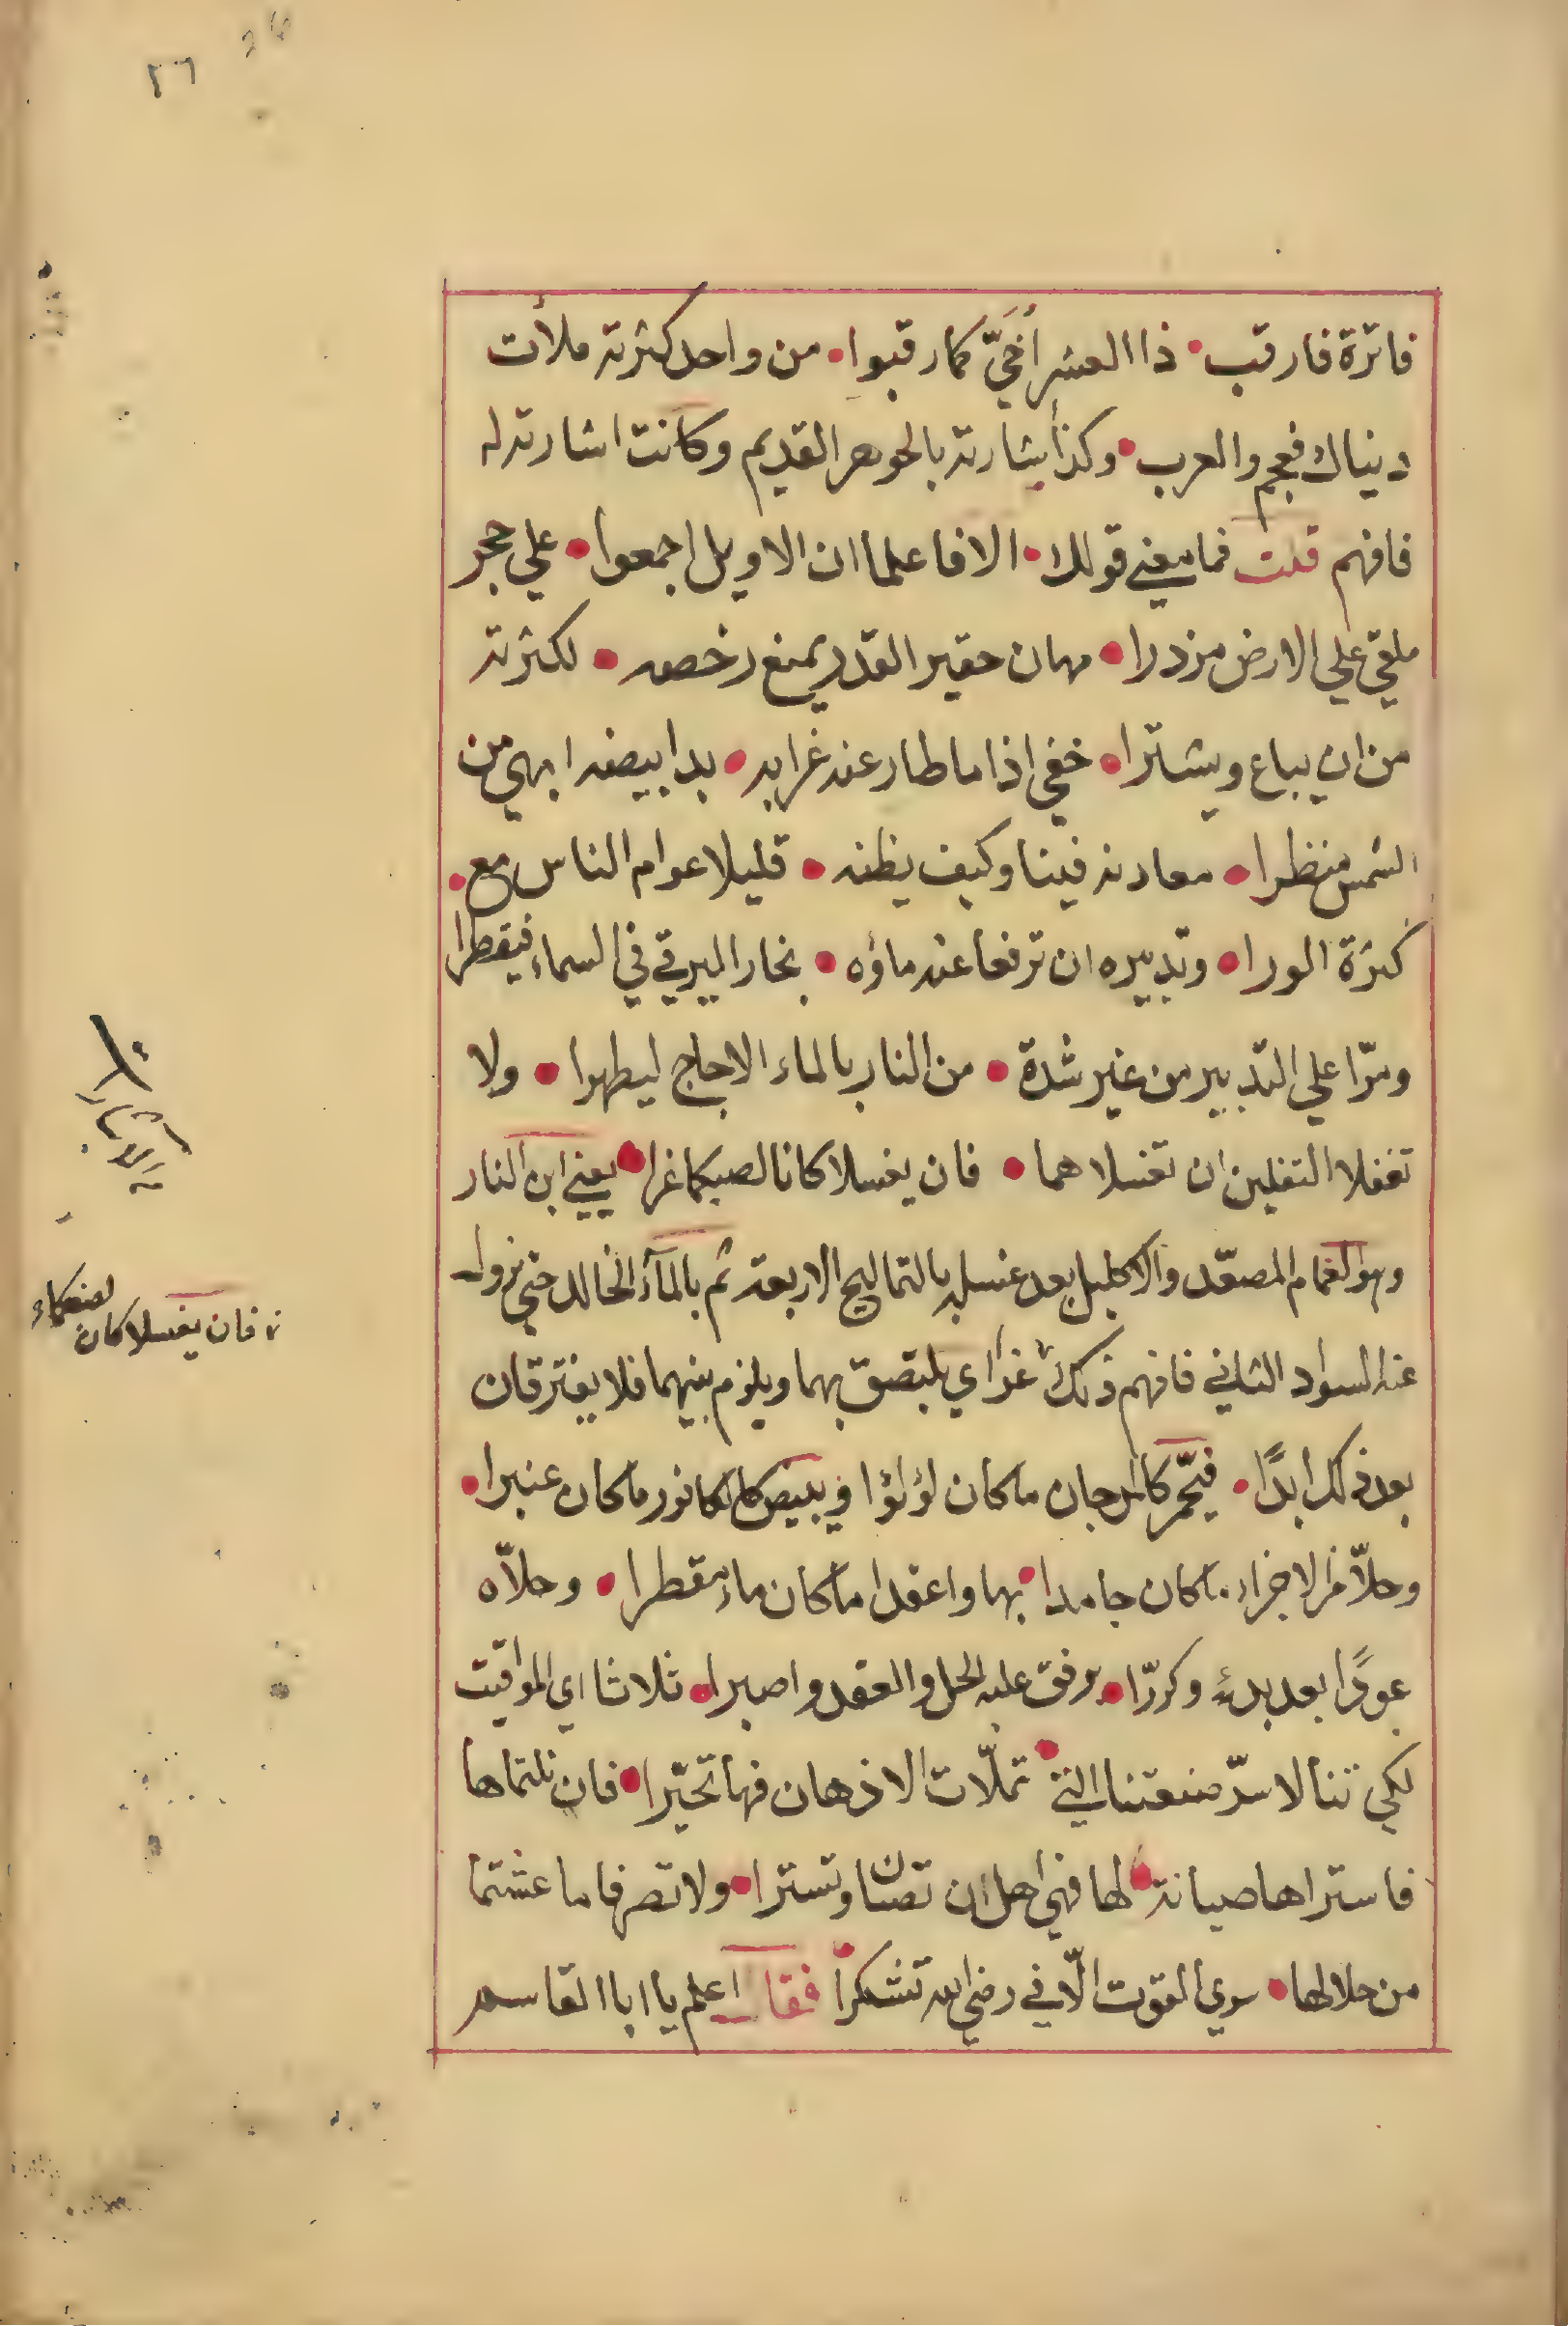 ٢٦
فاترة فارقب • ذا العشر أخيَّ كما رقبوا • من واحد كثرته ملأت
دنياك فعجم والعرب • وكذا بشارته بالجوهر القديم وكانت اشارته له
فافهم قلت فما معني قولك • الا فاعلما ان الاويل اجمعوا • علي حجر
ملقي علي الارض مزدرا • مهان حقير القدر يمنع رخصه • لكثرته
من ان يباع ويشترا • خفي اذا ما طار عنه غرابه • بدا بيضه ابهي من
الشمس منظرا • معادنه فينا وكيف يظنه • قليلا عوام الناس مع •
كثرة الورا • وتدبيره ان ترفعا عنه ماؤه • بخارا ليرقي في السماء فيقطرا
ومرّا علي التدبير من غير شدة • من النار بالماء الاجاج ليطهرا • ولا
تغفلا التفلين ان تغسلاهما • فان يغسلا كانا لصبكما غرا • يعني ابن النار
وهو الغمام المصعّد والاكليل بعد غسله بالتماليح الاربعة ثم بالمآء الخالد حتي يزول
عنه السواد الثاني فافهم ذلك غرا اي يلتصق بهما ويلزم بينهما فلا يفترقان
بعد ذلك ابدًا • فيحّمر كالمرجان ما كان لؤلؤا ويبيض كالكافور ما كان عنبرا •
وحلّا من الاجزاء ما كان جامدا • بها واعقدا ما كان ماء مقطرا • وحلّاه
عودًا بعد بدءٍ وكررّا • برفق عليه الحل والعقد واصبرا • ثلاثا اي المواقيت
لكي تنالا سرّ صنعتنا التي • تملّات الاذهان فها تحيّرا • فان نلتماها
فاستراها صيانة • لها فهي اهل ان تصان وتسترا • ولا تصرفا ما عشتما
من حلالها • سوي القوت الّا في رضي الله تشكرا • فقال اعلم يا ابا القاسم
ن فان يغسلا كان لصبغكما